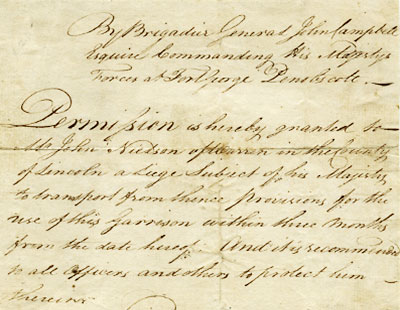 By Brigadier General John Campbell
Esquire Commanding His Majestys
Forces at Fort George Penobscote.
Permission is hereby granted to
Mr John Neilson of Warren in the County
of Lincoln a Liege Subject of his Majesty
to transport from thence provisions for the
use of this Garrison within three months
from the date hereof. And it is recommended
to all Officers and others to protect him
therein